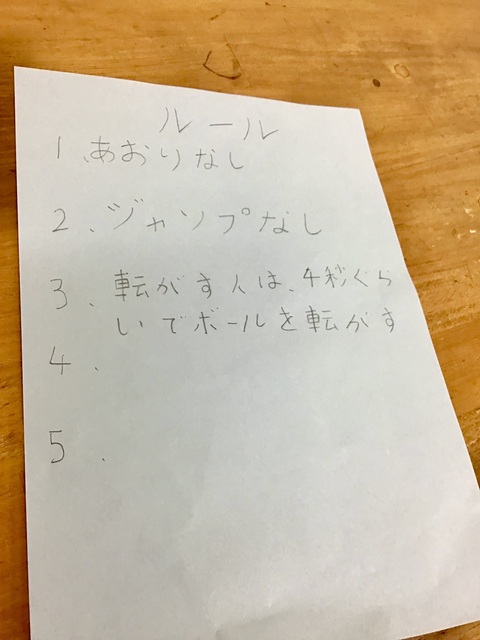 ルール
1、あおりなし
2、ジャンプなし
3、転がす人は、4秒ぐら
いでボールを転がす
4、
5、